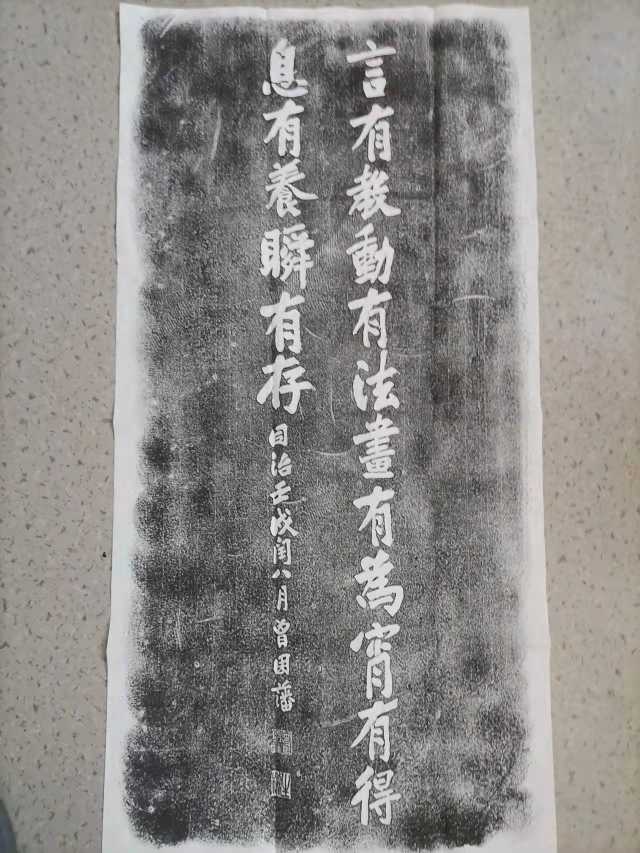 言有教動有法晝有為宵有得
息有養瞬有存
同治壬戌閏八月曾國藩